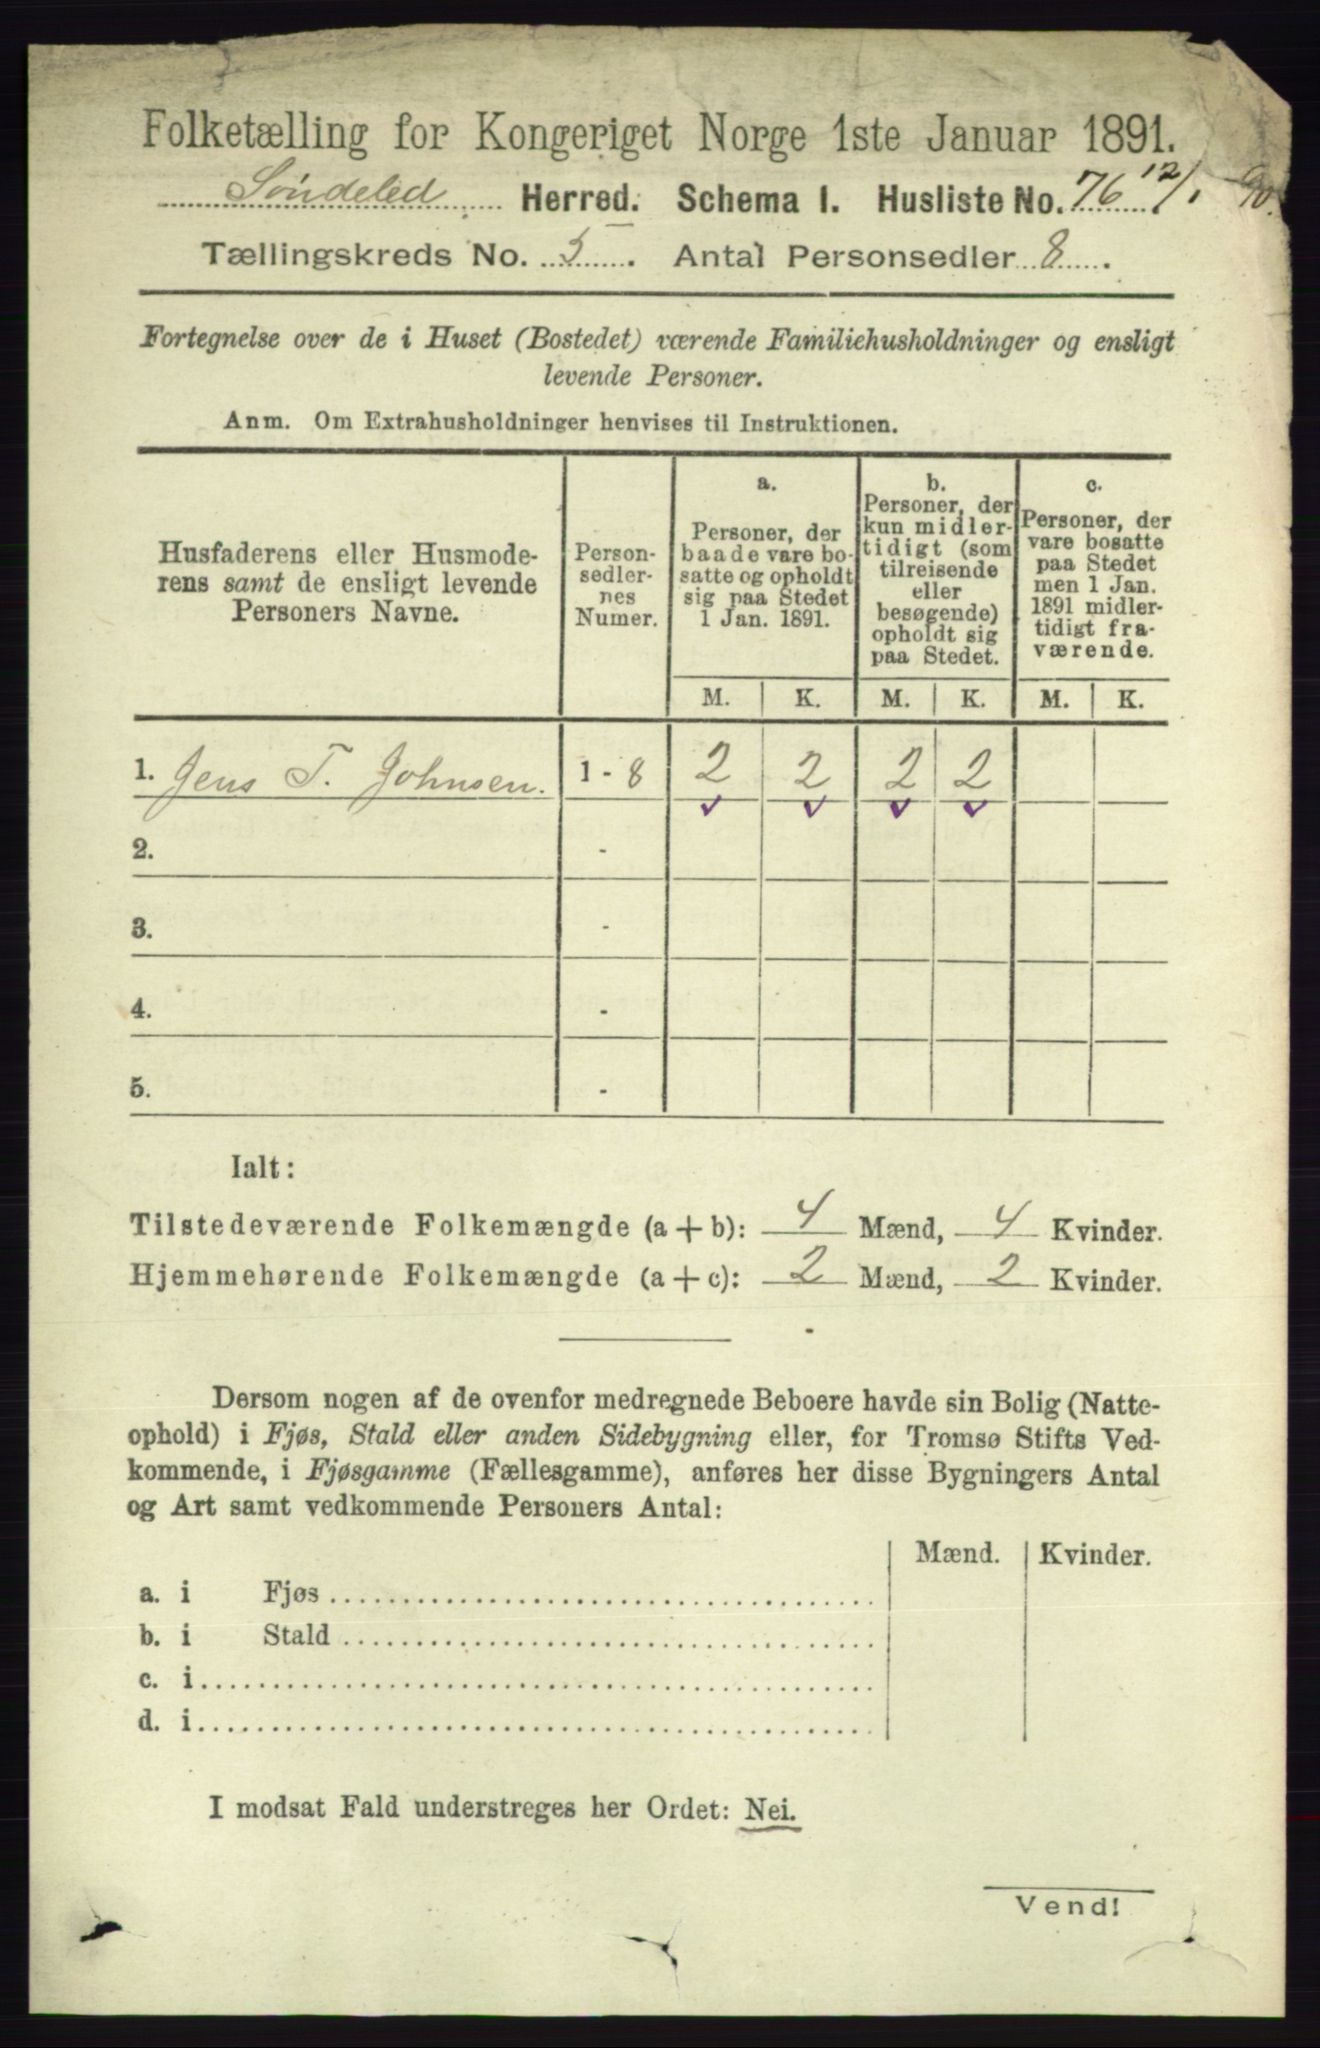 Folketælling for Kongeriget Norge 1ste Januar 1891.
Söndeled Herred. Schema I. Husliste No. 76 12/1 90.
Tællingskreds No. 5. Antal Personsedler 8.
Fortegnelse over de i Huset (Bostedet) værende Familiehusholdninger og ensligt
levende Personer.
Anm. Om Extrahusholdninger henvises til Instruktionen.
Husfaderens eller Husmode-
rens samt de ensligt levende
Personers Navne.
Person-
sedler-
nes
Numer.
a.
Personer, der
baade vare bo-
satte og opholdt
sig paa Stedet
1 Jan. 1891.
b.
Personer, der
kun midler-
tidigt (som
tilreisende
eller
besøgende)
opholdt sig
paa Stedet.
c.
Personer, der
vare bosatte
paa Stedet
men 1 Jan.
1891 midler-
tidigt fra-
værende.
M. K. M. K. M. K.
1. Jens T. Johnsen. 1 - 8 2 2 2 2
2. -
3. -
4. -
5. -
Ialt:
Tilstedeværende Folkemængde (a + b): 4 Mænd, 4 Kvinder.
Hjemmehørende Folkemængde (a + c): 2 Mænd, 2 Kvinder.
Dersom nogen af de ovenfor medregnede Beboere havde sin Bolig (Natte-
ophold) i Fjøs, Stald eller anden Sidebygning eller, for Tromsø Stifts Ved-
kommende, i Fjøsgamme (Fællesgamme), anføres her disse Bygningers Antal
og Art samt vedkommende Personers Antal:
Mænd. Kvinder.
a. i Fjøs
b. i Stald
c. i
d. i
I modsat Fald understreges her Ordet: Nei.
Vend!